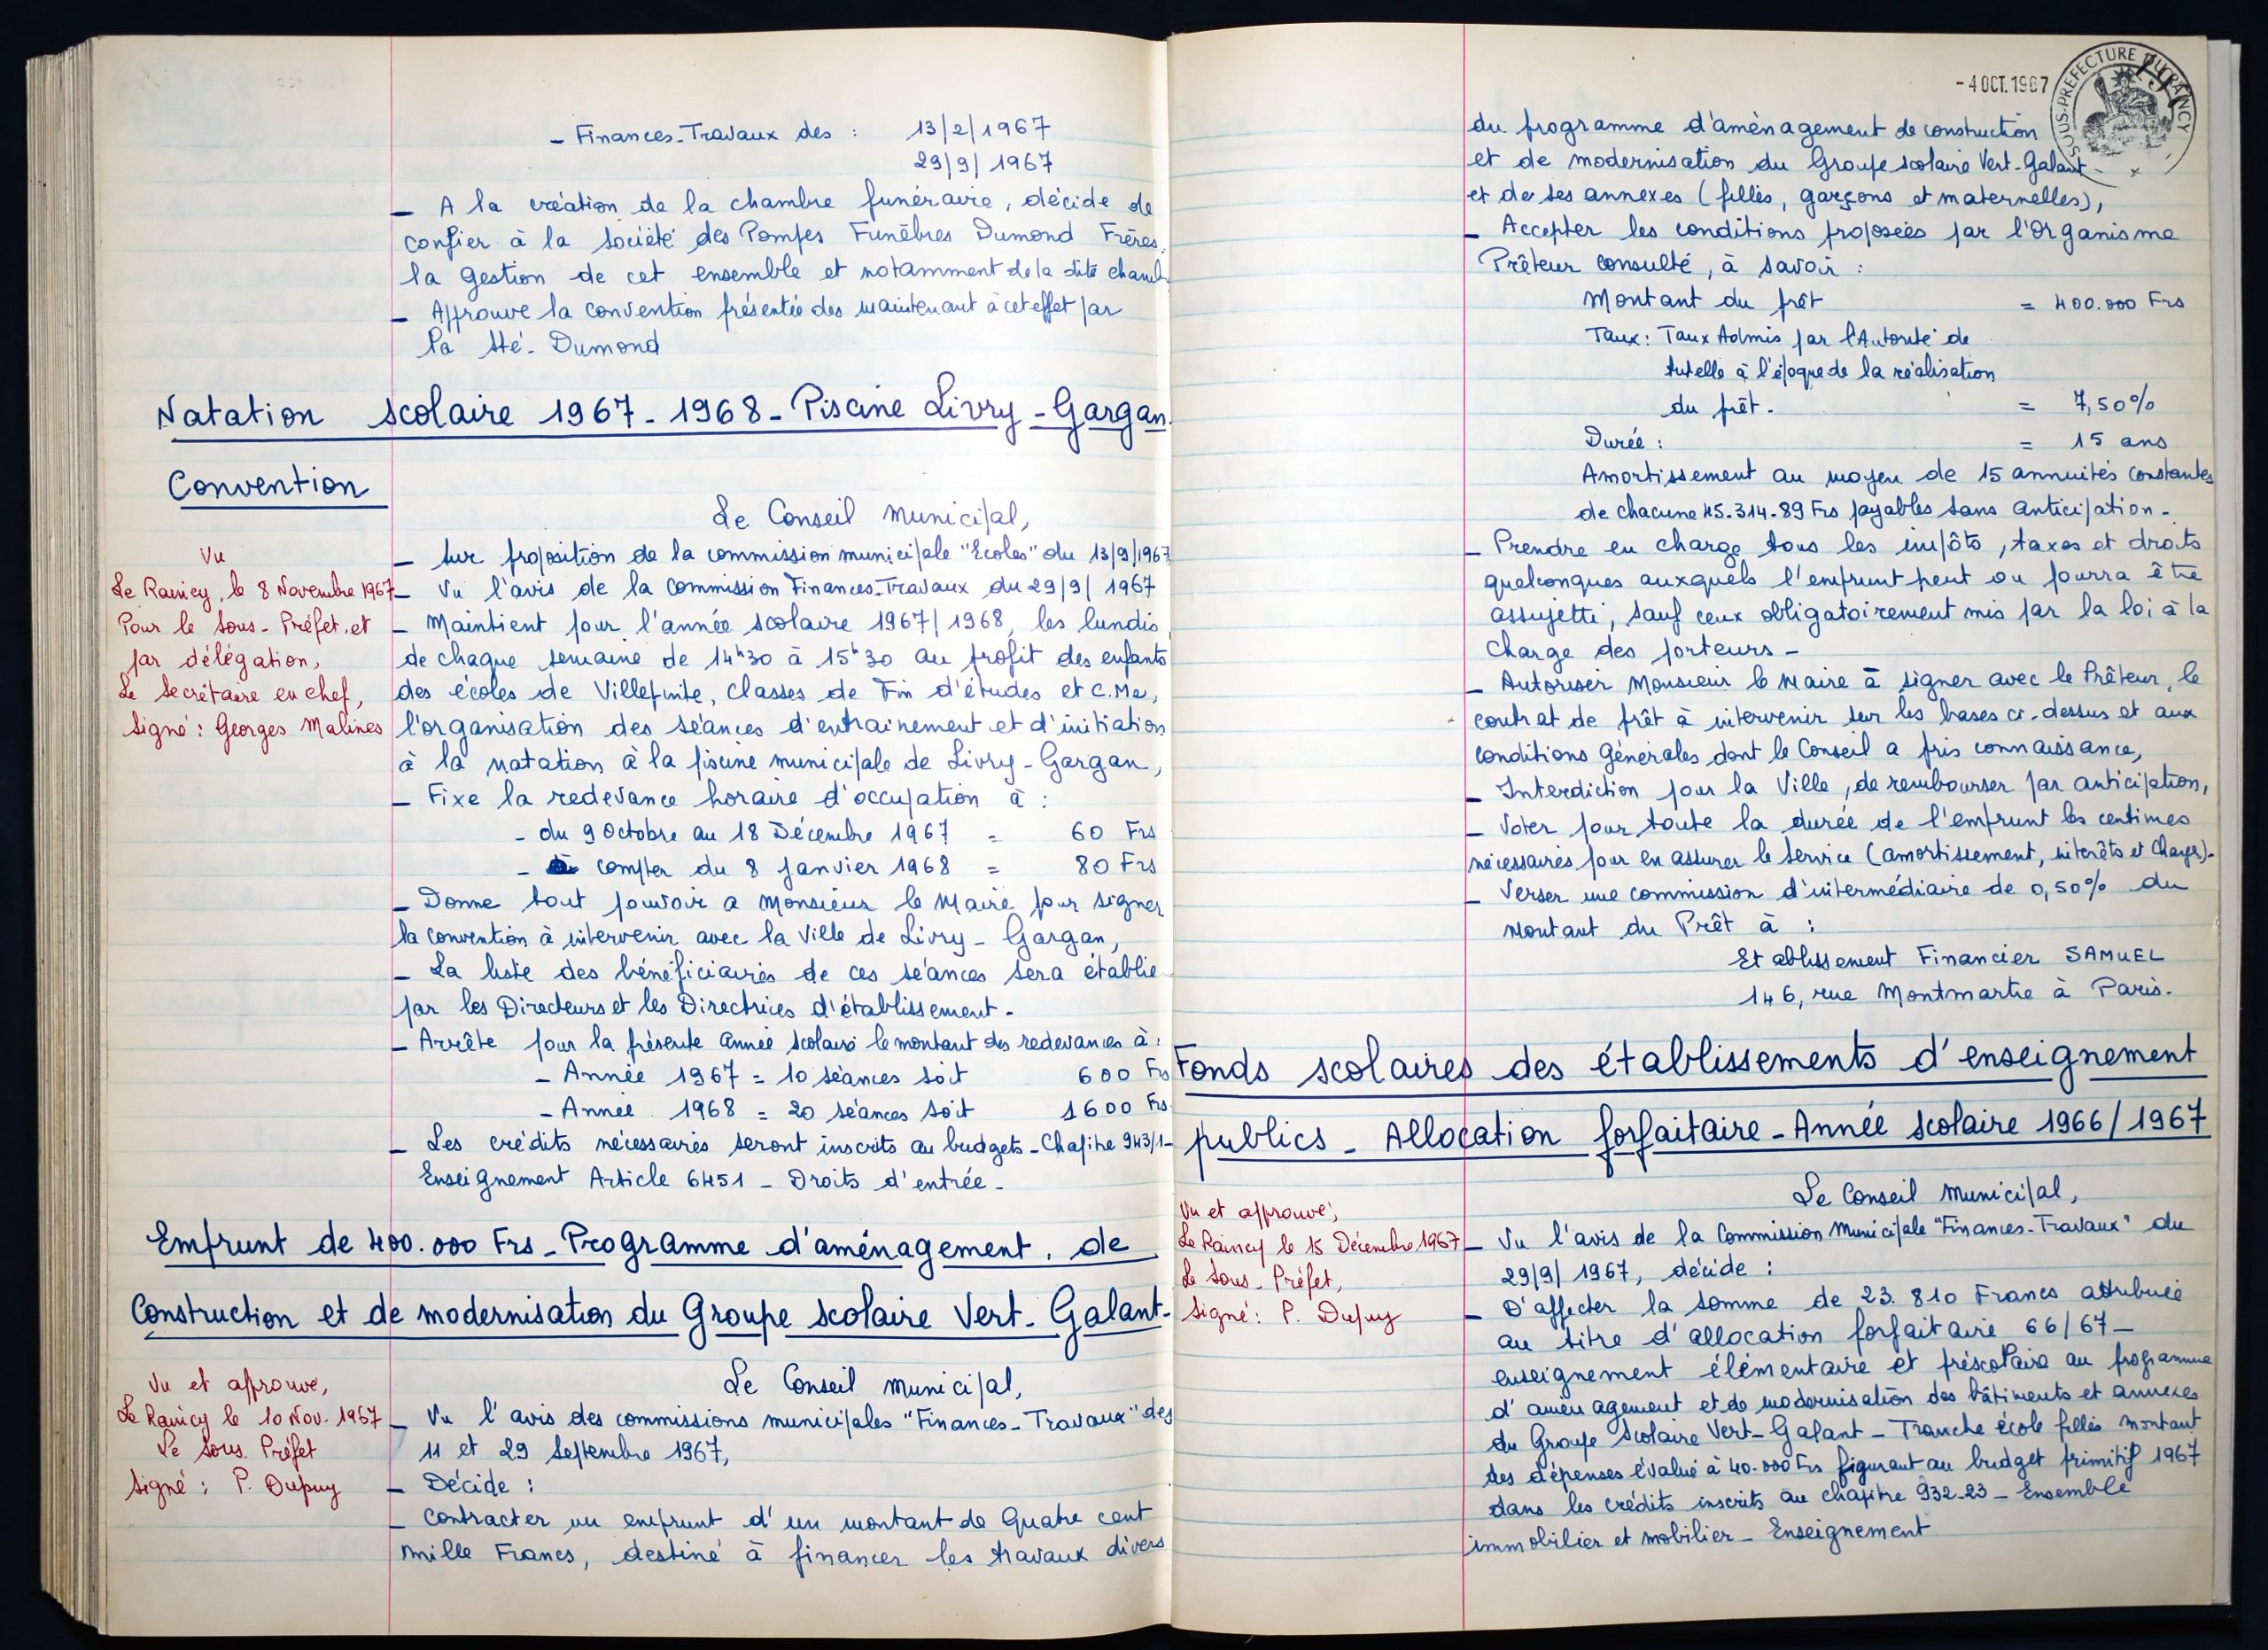 - Finances-Travaux des : 13/2/1967
29/9/1967
- A la création de la chambre funéraire, décide de
confier à la Société des Pompes Funèbres Dumond Frères,
la gestion de cet ensemble et notamment de la dite chamb
- Approuve la convention présentée des maintenant à cet effet par
la Sté. Dumond
Natation scolaire 1967-1968 - Piscine Livry-Gargan.
Convention
Le Conseil Municipal,
- Sur proposition de la commission municipale "Ecoles" du 13/9/1967
- Vu l'avis de la Commission Finances-Travaux du 29/9/1967
- Maintient pour l'année scolaire 1967/1968, les lundis
de chaque semaine de 14h30 à 15h30 au profit des enfants
des écoles de Villepinte, classes de Fin d'études et C.Me,
l'organisation des séances d'entrainement et d'initiation
à la natation à la piscine municipale de Livry-Gargan,
- Fixe la redevance horaire d'occupation à :
- du 9 Octobre au 18 Décembre 1967 = 60 Frs
- à compter du 8 janvier 1968 = 80 Frs
- Donne tout pouvoir a Monsieur le Maire pour signer
la convention à intervenir avec la Ville de Livry-Gargan,
- La liste des bénéficiaires de ces séances sera établie
par les Directeurs et les Directrices d'établissement.
- Arrête pour la présente année scolaire le montant des redevances à :
- Année 1967 = 10 séances soit 600 Frs
- Année 1968 = 20 séances soit 1600 Frs
- Les crédits nécessaires seront inscrits au budgets - Chapitre 943/1-
Enseignement Article 6451 - Droits d'entrée -
Vu
Le Raincy, le 8 Novembre 1967
Pour le Sous-Préfet et
par délégation,
Le Secrétaire en chef,
Signé : Georges Malines
Emprunt de 400.000 Frs - Programme d'aménagement, de
Construction et de modernisation du Groupe scolaire Vert-Galant-
Le Conseil Municipal,
- Vu l'avis des commissions municipales "Finances-Travaux" des
11 et 29 Septembre 1967,
- Décide :
- Contracter un emprunt d'un montant de Quatre cent
mille Francs, destiné à financer les travaux divers
Vu et approuvé,
Le Raincy le 10 Nov. 1967
Le Sous-Préfet
Signé : P. Dupuy
-4 OCT. 1967
SOUS-PREFECTURE DU RAINCY
du programme d'aménagement de construction
et de modernisation du Groupe scolaire Vert-Galant-
et de ses annexes (filles, garçons et maternelles),
- Accepter les conditions proposées par l'Organisme
Prêteur consulté, à savoir :
Montant du prêt = 400.000 Frs
Taux : Taux Admis par l'Autorité de
tutelle à l'époque de la réalisation
du prêt. = 7,50%
Durée : = 15 ans
Amortissement au moyen de 15 annuités constantes
de chacune 45.314.89 Frs payables sans anticipation -
- Prendre en charge tous les impôts, taxes et droits
quelconques auxquels l'emprunt peut ou pourra être
assujetti, sauf ceux obligatoirement mis par la loi à la
charge des porteurs -
- Autoriser Monsieur le Maire à signer avec le Prêteur, le
contrat de prêt à intervenir sur les bases ci-dessus et aux
conditions Générales dont le Conseil a pris connaissance,
- Interdiction pour la Ville, de rembourser par anticipation,
- Voter pour toute la durée de l'emprunt les centimes
nécessaires pour en assurer le service (amortissement, intérêts et charges)-
- Verser une commission d'intermédiaire de 0,50% du
montant du Prêt à :
Etablissement Financier SAMUEL
146, rue Montmartre à Paris.
Fonds scolaires des établissements d'enseignement
publics - Allocation forfaitaire - Année scolaire 1966/1967
Le Conseil Municipal,
- Vu l'avis de la Commission Municipale "Finances-Travaux" du
29/9/1967, décide :
- D'affecter la somme de 23.810 Francs attribuée
au titre d'allocation forfaitaire 66/67 -
enseignement élémentaire et préscolaire au programme
d'aménagement et de modernisation des bâtiments et annexes
du Groupe Scolaire Vert-Galant - Tranche école filles montant
des dépenses évalué à 40.000 Frs figurant au budget primitif 1967
dans les crédits inscrits au chapitre 932-23 - Ensemble
immobilier et mobilier - Enseignement
Vu et approuvé,
Le Raincy le 15 Décembre 1967
Le Sous-Préfet,
Signé : P. Dupuy